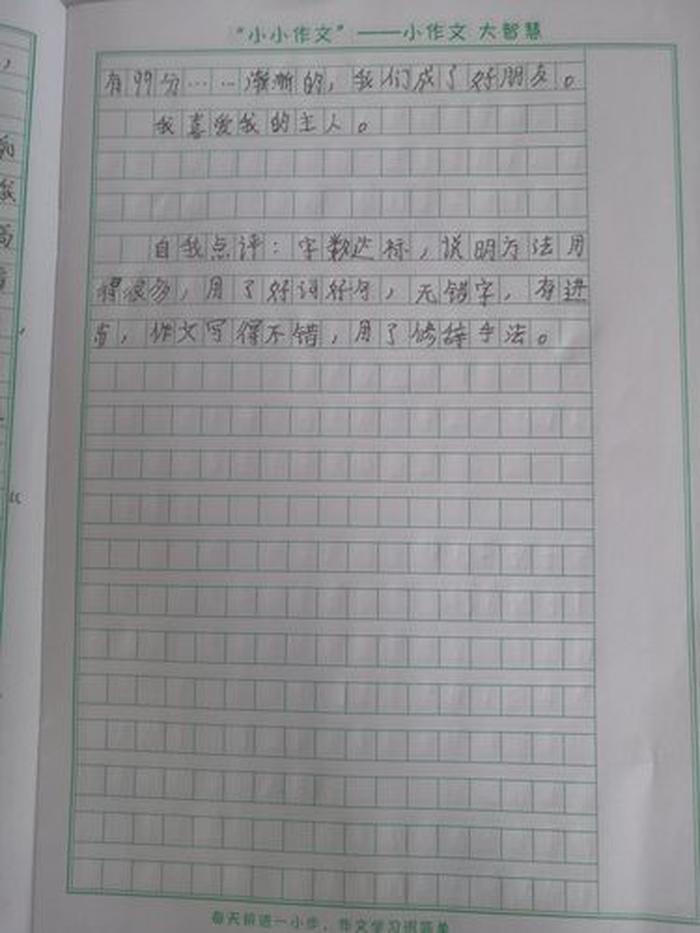 “小小作文”——小作文 大智慧
有99分……渐渐的，我们成了好朋友。
我喜爱我的主人。
自我点评：字数达标，说明方法用
得很多，用了好词好句，无错字，有进
步，作文写得不错，用了修辞手法。
每天前进一小步，作文学习很简单